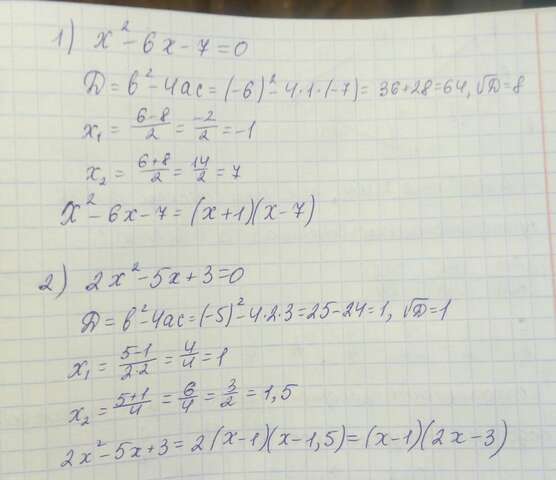 1) x² - 6x - 7 = 0
Д = b² - 4ac = (-6)² - 4·1·(-7) = 36+28=64, √Д=8
x₁ = (6-8)/2 = -2/2 = -1
x₂ = (6+8)/2 = 14/2 = 7
x² - 6x - 7 = (x+1)(x-7)
2) 2x² - 5x + 3 = 0
Д = b² - 4ac = (-5)² - 4·2·3 = 25-24=1, √Д=1
x₁ = (5-1)/(2·2) = 4/4 = 1
x₂ = (5+1)/4 = 6/4 = 3/2 = 1,5
2x² - 5x + 3 = 2(x-1)(x-1,5) = (x-1)(2x-3)